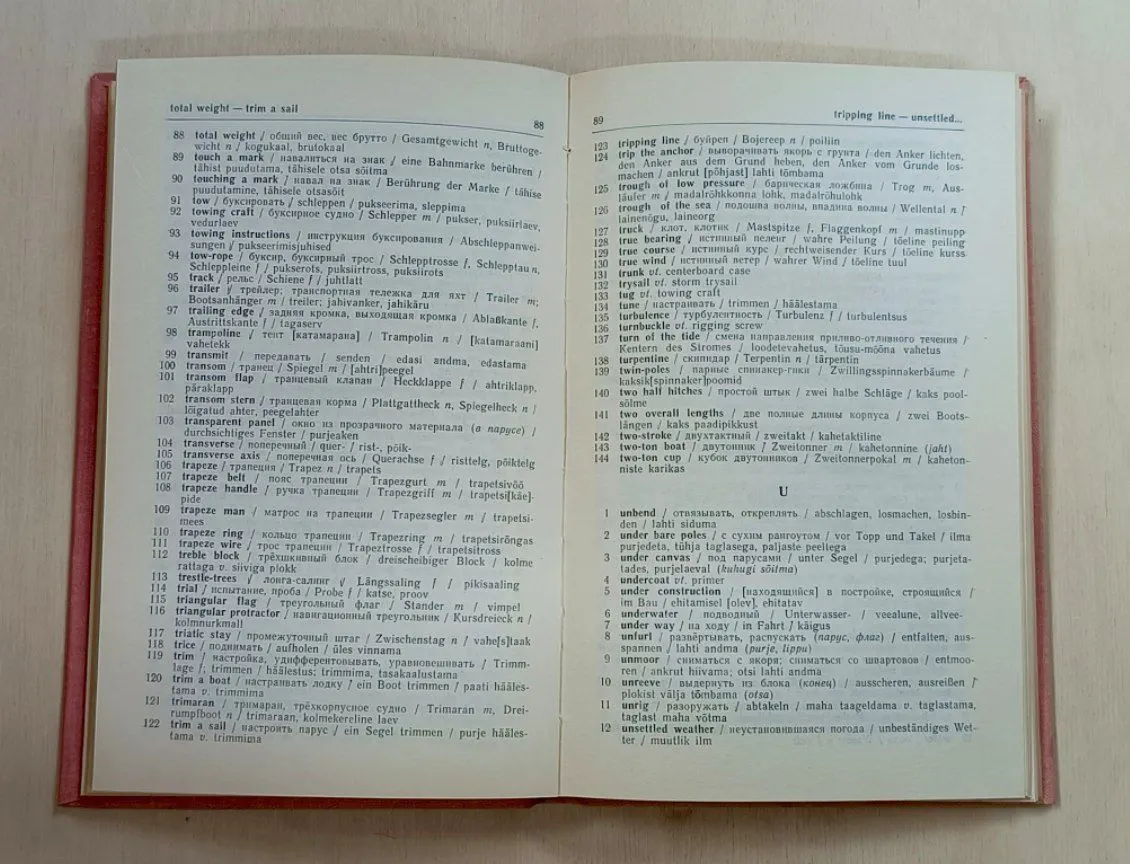 total weight — trim a sail
88
88 total weight / общий вес, вес брутто / Gesamtgewicht n, Bruttoge-
wicht n / kogukaal, brutokaal
89 touch a mark / навалиться на знак / eine Bahnmarke berühren /
tähist puudutama, tähisele otsa sõitma
90 touching a mark / навал на знак / Berührung der Marke / tähise
puudutamine, tähisele otsasõit
91 tow / буксировать / schleppen / pukseerima, sleppima
92 towing craft / буксирное судно / Schlepper m / pukser, puksiirlaev,
vedurlaev
93 towing instructions / инструкция буксирования / Abschleppanwei-
sungen / pukseerimisjuhised
94 tow-rope / буксир, буксирный трос / Schlepptrosse f, Schlepptau n,
Schleppleine f / pukserots, puksiirtross, puksiirots
95 track / рельс / Schiene f / juhtlatt
96 trailer / трейлер; транспортная тележка для яхт / Trailer m;
Bootsanhänger m / treiler; jahivanker, jahikäru
97 trailing edge / задняя кромка, выходящая кромка / Ablaßkante f,
Austrittskante f / tagaserv
98 trampoline / тент [катамарана] / Trampolin n / [katamaraani]
vahetekk
99 transmit / передавать / senden / edasi andma, edastama
100 transom / транец / Spiegel m / [ahtri]peegel
101 transom flap / транцевый клапан / Heckklappe f / ahtriklapp,
päraklapp
102 transom stern / транцевая корма / Plattgattheck n, Spiegelheck n /
lõigatud ahter, peegelahter
103 transparent panel / окно из прозрачного материала (в парусе) /
durchsichtiges Fenster / purjeaken
104 transverse / поперечный / quer- / rist-, põik-
105 transverse axis / поперечная ось / Querachse f / risttelg, põiktelg
106 trapeze / трапеция / Trapez n / trapets
107 trapeze belt / пояс трапеции / Trapezgurt m / trapetsivöö
108 trapeze handle / ручка трапеции / Trapezgriff m / trapetsi[käe]-
pide
109 trapeze man / матрос на трапеции / Trapezsegler m / trapetsi-
mees
110 trapeze ring / кольцо трапеции / Trapezring m / trapetsirõngas
111 trapeze wire / трос трапеции / Trapeztrosse f / trapetsitross
112 treble block / трёхшкивный блок / dreischeibiger Block / kolme
rattaga v. siiviga plokk
113 trestle-trees / лонга-салинг / Längssaling f / pikisaaling
114 trial / испытание, проба / Probe f / katse, proov
115 triangular flag / треугольный флаг / Stander m / vimpel
116 triangular protractor / навигационный треугольник / Kursdreieck n /
kolmnurkmall
117 triatic stay / промежуточный штаг / Zwischenstag n / vahe[s]taak
118 trice / поднимать / aufholen / üles vinnama
119 trim / настройка, удифферентовывать, уравновешивать / Trimm-
lage f; trimmen / häälestus; trimmima, tasakaalustama
120 trim a boat / настраивать лодку / ein Boot trimmen / paati hääles-
tama v. trimmima
121 trimaran / тримаран, трёхкорпусное судно / Trimaran m, Drei-
rumpfboot n / trimaraan, kolmekereline laev
122 trim a sail / настроить парус / ein Segel trimmen / purje hääles-
tama v. trimmima
89
tripping line — unsettled...
123 tripping line / буйреп / Bojereep n / poiliin
124 trip the anchor / выворачивать якорь с грунта / den Anker lichten,
den Anker aus dem Grund heben, den Anker vom Grunde los-
machen / ankrut [põhjast] lahti tõmbama
125 trough of low pressure / барическая ложбина / Trog m, Aus-
läufer m / madalrõhkkonna lohk, madalrõhulohk
126 trough of the sea / подошва волны, впадина волны / Wellental n /
lainenõgu, laineorg
127 truck / клот, клотик / Mastspitze f, Flaggenkopf m / mastinupp
128 true bearing / истинный пеленг / wahre Peilung / tõeline peiling
129 true course / истинный курс / rechtweisender Kurs / tõeline kurss
130 true wind / истинный ветер / wahrer Wind / tõeline tuul
131 trunk vt. centerboard case
132 trysail vt. storm trysail
133 tug vt. towing craft
134 tune / настраивать / trimmen / häälestama
135 turbulence / турбулентность / Turbulenz f / turbulentsus
136 turnbuckle vt. rigging screw
137 turn of the tide / смена направления приливо-отливного течения /
Kentern des Stromes / loodetevahetus, tõusu-mõõna vahetus
138 turpentine / скипидар / Terpentin n / tärpentin
139 twin-poles / парные спинакер-гики / Zwillingsspinnakerbäume /
kaksik[spinnaker]poomid
140 two half hitches / простой штык / zwei halbe Schläge / kaks pool-
sõlme
141 two overall lengths / две полные длины корпуса / zwei Boots-
längen / kaks paadipikkust
142 two-stroke / двухтактный / zweitakt / kahetaktiline
143 two-ton boat / двутонник / Zweitonner m / kahetonnine (jaht)
144 two-ton cup / кубок двутонников / Zweitonnerpokal m / kaheton-
niste karikas
U
1 unbend / отвязывать, откреплять / abschlagen, losmachen, losbin-
den / lahti siduma
2 under bare poles / с сухим рангоутом / vor Topp und Takel / ilma
purjedeta, tühja taglasega, paljaste peeltega
3 under canvas / под парусами / unter Segel / purjedega; purjeta-
tades, purjelaeval (kuhugi sõitma)
4 undercoat vt. primer
5 under construction / [находящийся] в постройке, строящийся /
im Bau / ehitamisel [olev], ehitatav
6 underwater / подводный / Unterwasser- / veealune, allvee-
7 under way / на ходу / in Fahrt / käigus
8 unfurl / развёртывать, распускать (парус, флаг) / entfalten, aus-
spannen / lahti andma (purje, lippu)
9 unmoor / сниматься с якоря; сниматься со швартовов / entmoo-
ren / ankrut hiivama; otsi lahti andma
10 unreeve / выдернуть из блока (конец) / ausscheren, ausreißen /
plokist välja tõmbama (otsa)
11 unrig / разоружать / abtakeln / maha taageldama v. taglastama,
taglast maha võtma
12 unsettled weather / неустановившаяся погода / unbeständiges Wet-
ter / muutlik ilm